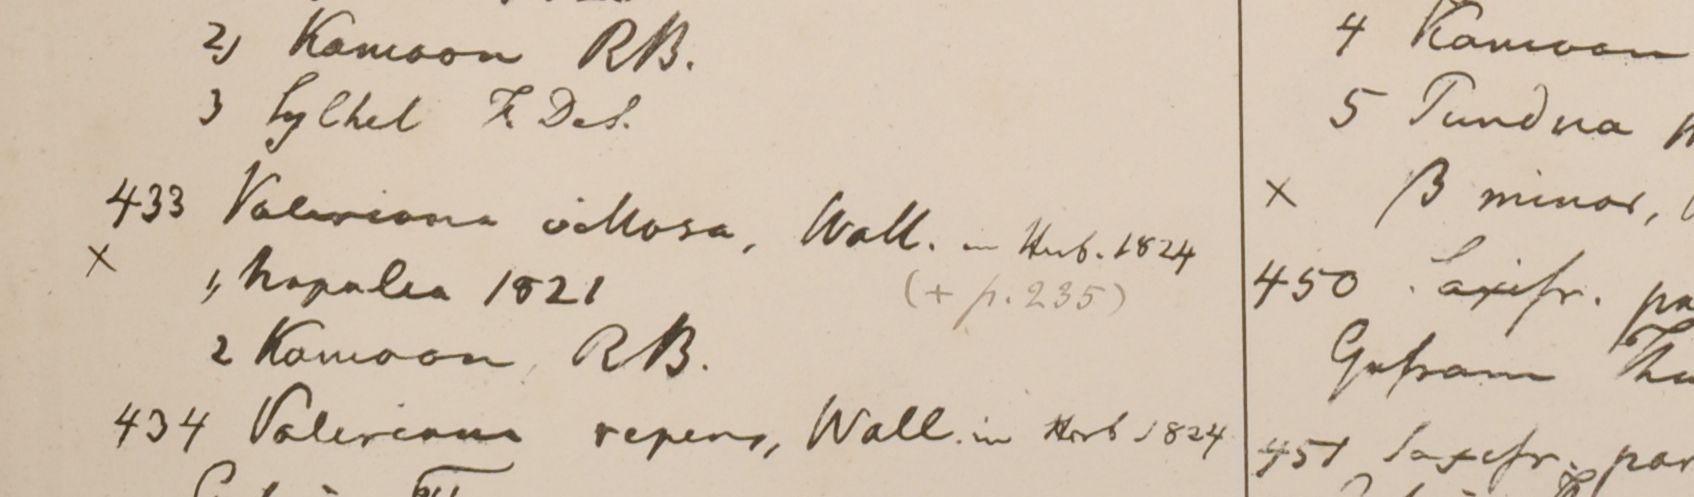 2, Kamoon RB.
3 Sylhet F. DeS.
433 Valeriana villosa, Wall. in Herb. 1824
x
1, Napalia 1821 (+ p. 235)
2 Kamoon, RB.
434 Valeriana repens, Wall. in Herb 1824
4 Kamoon
5 Tundua
x β minor,
450 Saxifr. pa
Gosram Tha
451 Saxifr. par